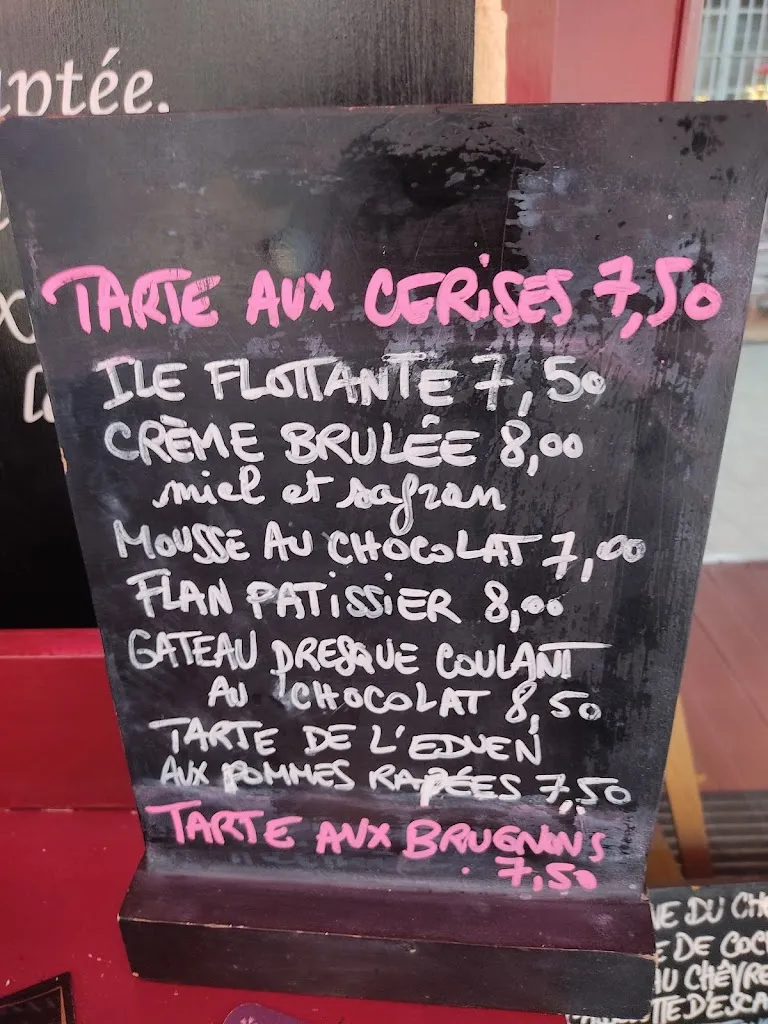 aptée.
TARTE AUX CERISES 7,50
ILE FLOTTANTE 7,50
CRÈME BRULÉE 8,00
miel et safran
MOUSSE AU CHOCOLAT 7,00
FLAN PATISSIER 8,00
GATEAU PRESQUE COULANT
AU CHOCOLAT 8,50
TARTE DE L'EDUEN
AUX POMMES RAPÉES 7,50
TARTE AUX BRUGNONS
7,50
DU
DE
AU CHÈVRE